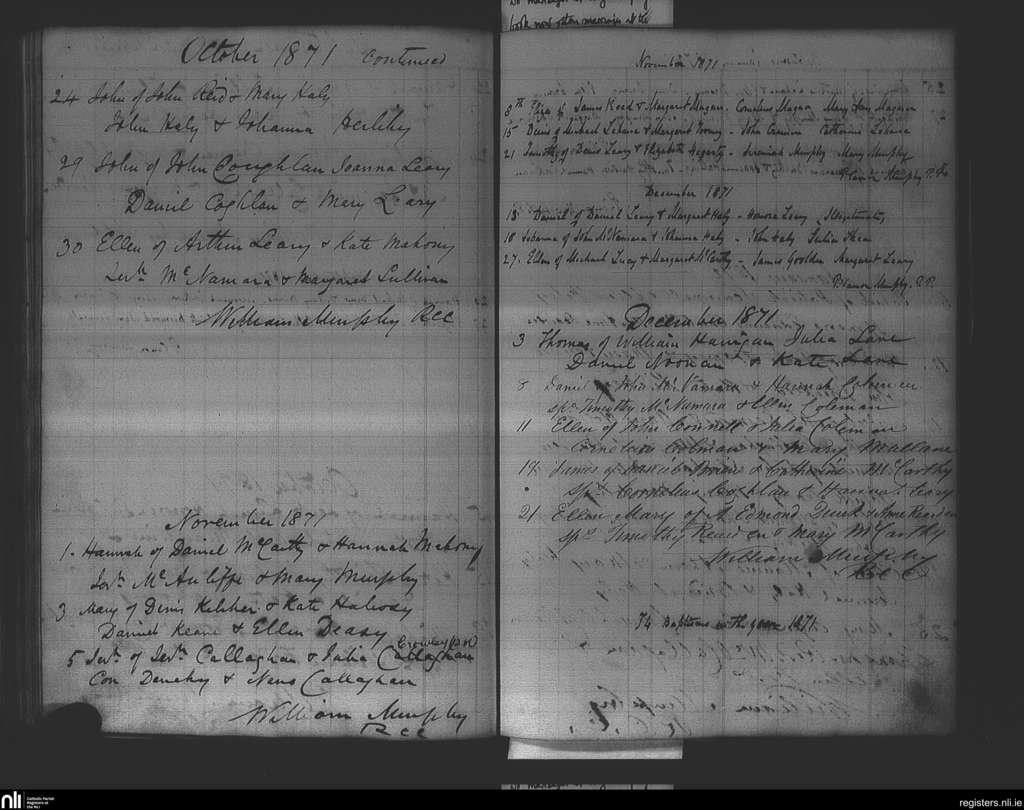 book
October 1871 continued
24 John of John Reid & Mary Haly
John Haly & Johanna
29 John of John Coughlan Joanna Leary
Daniel Coghlan & Mary Leary
30 Ellen of Arthur Leary & Kate Mahony
Jerh McNamara & Margaret Sullivan
William Murphy RCC
November 1871
1. Hannah of Daniel McCarthy & Hannah Mahony
Jerh McAuliffe & Mary Murphy
3 Mary of Denis Keliher & Kate
Daniel Keane & Ellen Deasy
Crowley
5 Jerh of Jerh Callaghan & Julia Callaghan
Con & Nano Callaghan
William Murphy
RCC
November 1871
8th of James Read & Margaret Magner. Cornelius Magner Mary Magner
15 Denis of Michael & Margaret - John Catherine
21 Timothy of Denis Leary & Elizabeth Hegarty - Jeremiah Murphy Mary Murphy
Murphy P.P.
December 1871
Daniel of Daniel Leary & Margaret Haly - Honora Leary
Johanna of John McNamara & Johanna Haly - John Haly Julia Shea
27. Ellen of Michael Lucy & Margaret McCarthy - James Goolden Margaret Leary
Murphy. P.P.
December 1871
3 Thomas of William Hannigan Julia Lane
Daniel Noonan & Kate Lane
8 Daniel of John McNamara & Hannah Coleman
Sps Timothy McNamara & Ellen Coleman
11 Ellen of John Connell & Julia Coleman
Cornelius Colman & Mary Mullane
James of & Catherine McCarthy
Sps Cornelius Coghlan & Hannah Leary
21 Ellen Mary of Edmond Quirk & Anne Reardon
Sps Timothy Reardon & Mary McCarthy
William Murphy
RCC
74 Baptisms in the year 1871
nli
Catholic Parish
Registers at
the NLI
registers.nli.ie